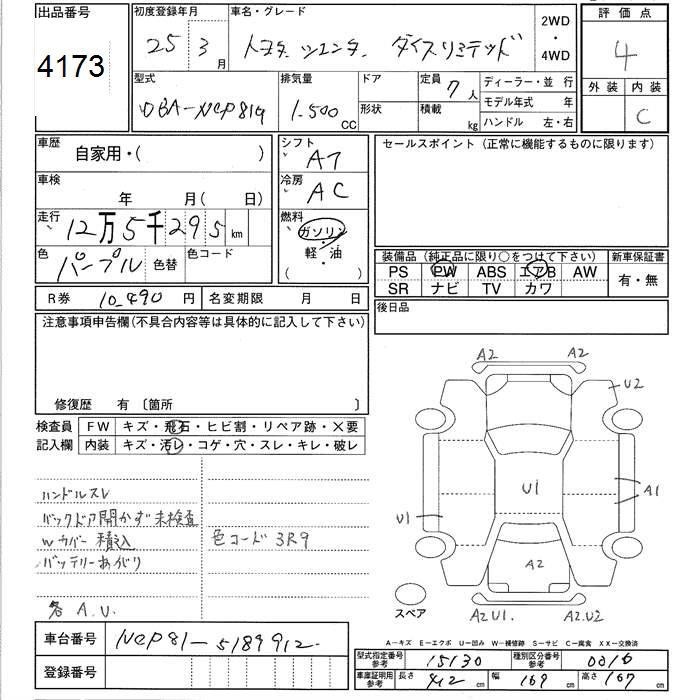 出品番号 初度登録年月 車名・グレード 2WD・4WD 評価点
4173 25 3月 トヨタ シエンタ ダイスリミテッド 4
型式 排気量 ドア 定員 7人 ディーラー・並 行 外装 内装
DBA-NCP81G 1.500 CC 形状 積載 kg モデル年式 年 C
ハンドル 左・右
車歴 自家用・( ) シフト AT セールスポイント (正常に機能するものに限ります)
車検 年 月( 日) 冷房 AC
走行 12万5千295km 燃料 ガソリン
軽・油
( )
色 パープル 色替 色コード 装備品 (純正品に限り○をつけて下さい) 新車保証書
PS PW ABS エアB AW 有・無
SR ナビ TV カワ
R券 10,490 円 名変期限 月 日 後日品
注意事項申告欄(不具合内容等は具体的に記入して下さい)
修復歴 有 〔箇所 〕
検査員 FW キズ・飛石・ヒビ割・リペア跡・X要
記入欄 内装 キズ・汚レ・コゲ・穴・スレ・キレ・破レ
ハンドルスレ
バックドア開かず未検査
Wカバー積込 色コード 3R9
バッテリーあがり
各 A.U.
A2 A2
U2
U1 A1
U1
A2
スペア A2U1. A2.U2
A-キズ E-エクボ U-凹み W-補修跡 S-サビ C-腐食 XX-交換済
車台番号 NCP81-5189912
型式指定番号 参考 15130 種別区分番号 参考 0016
登録番号 車庫証明用 参考 長さ 412 cm 幅 169 cm 高さ 167 cm